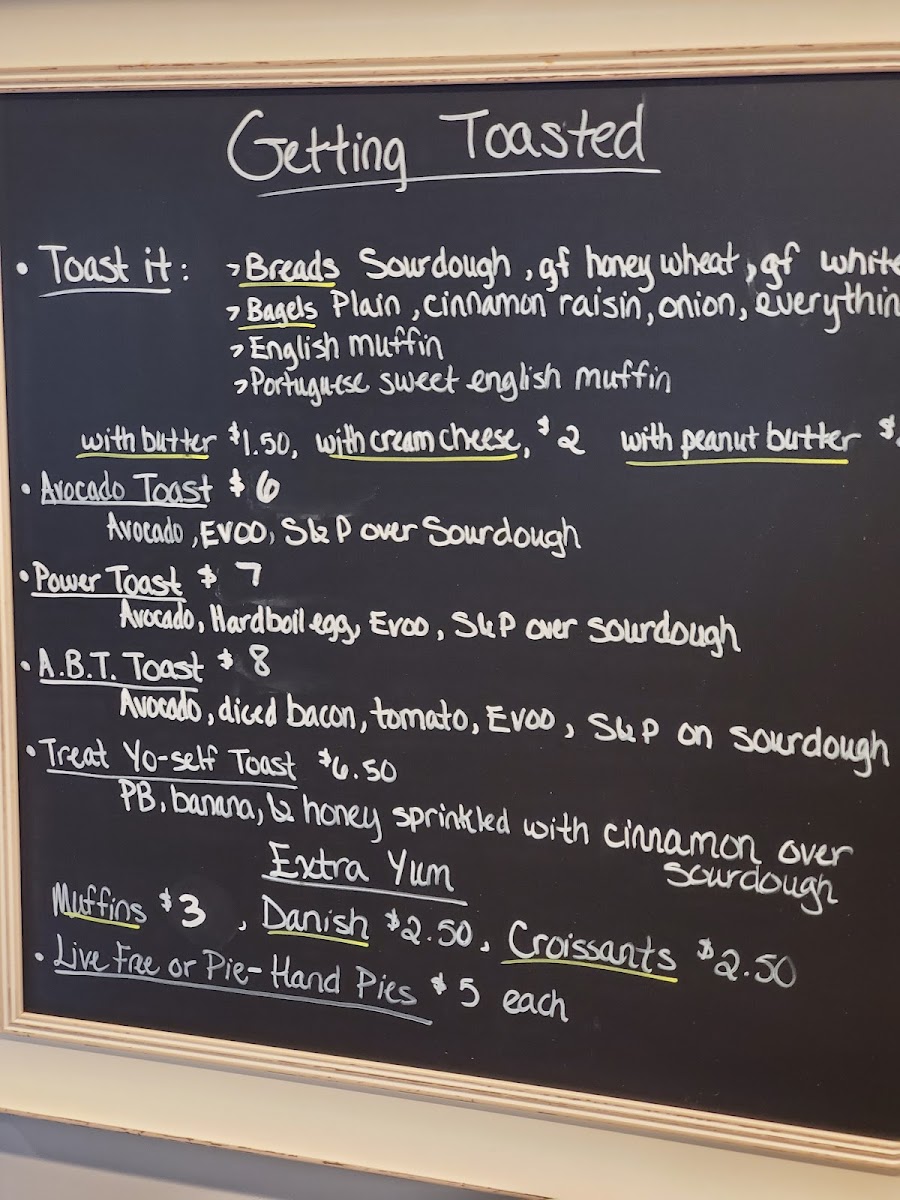 Getting Toasted
• Toast it: > Breads Sourdough, gf honey wheat, gf white
> Bagels Plain, cinnamon raisin, onion, everythin
> English muffin
> Portuguese sweet english muffin
with butter $1.50, with cream cheese, $2 with peanut butter $
• Avocado Toast $6
Avocado, EVOO, S & P over Sourdough
• Power Toast $7
Avocado, Hardboil egg, Evoo, S & P over sourdough
• A.B.T. Toast $8
Avocado, diced bacon, tomato, EVOO, S & P on sourdough
• Treat Yo-self Toast $6.50
PB, banana, & honey sprinkled with cinnamon over
sourdough
Extra Yum
Muffins $3, Danish $2.50, Croissants $2.50
• Live Free or Pie-Hand Pies $5 each